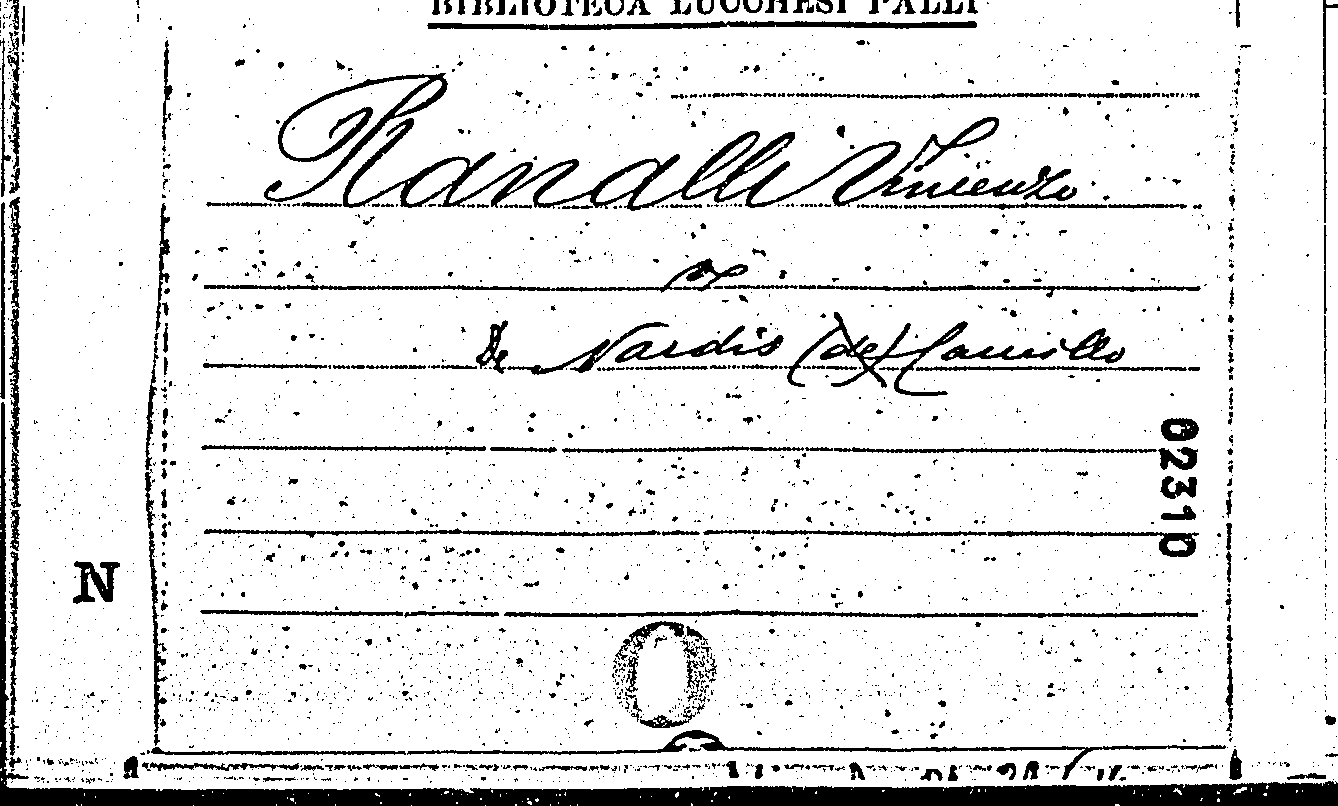 BIBLIOTECA LUCCHESI PALLI
Ranalli Vincenzo
De Nardis (de) Camillo
02310
N